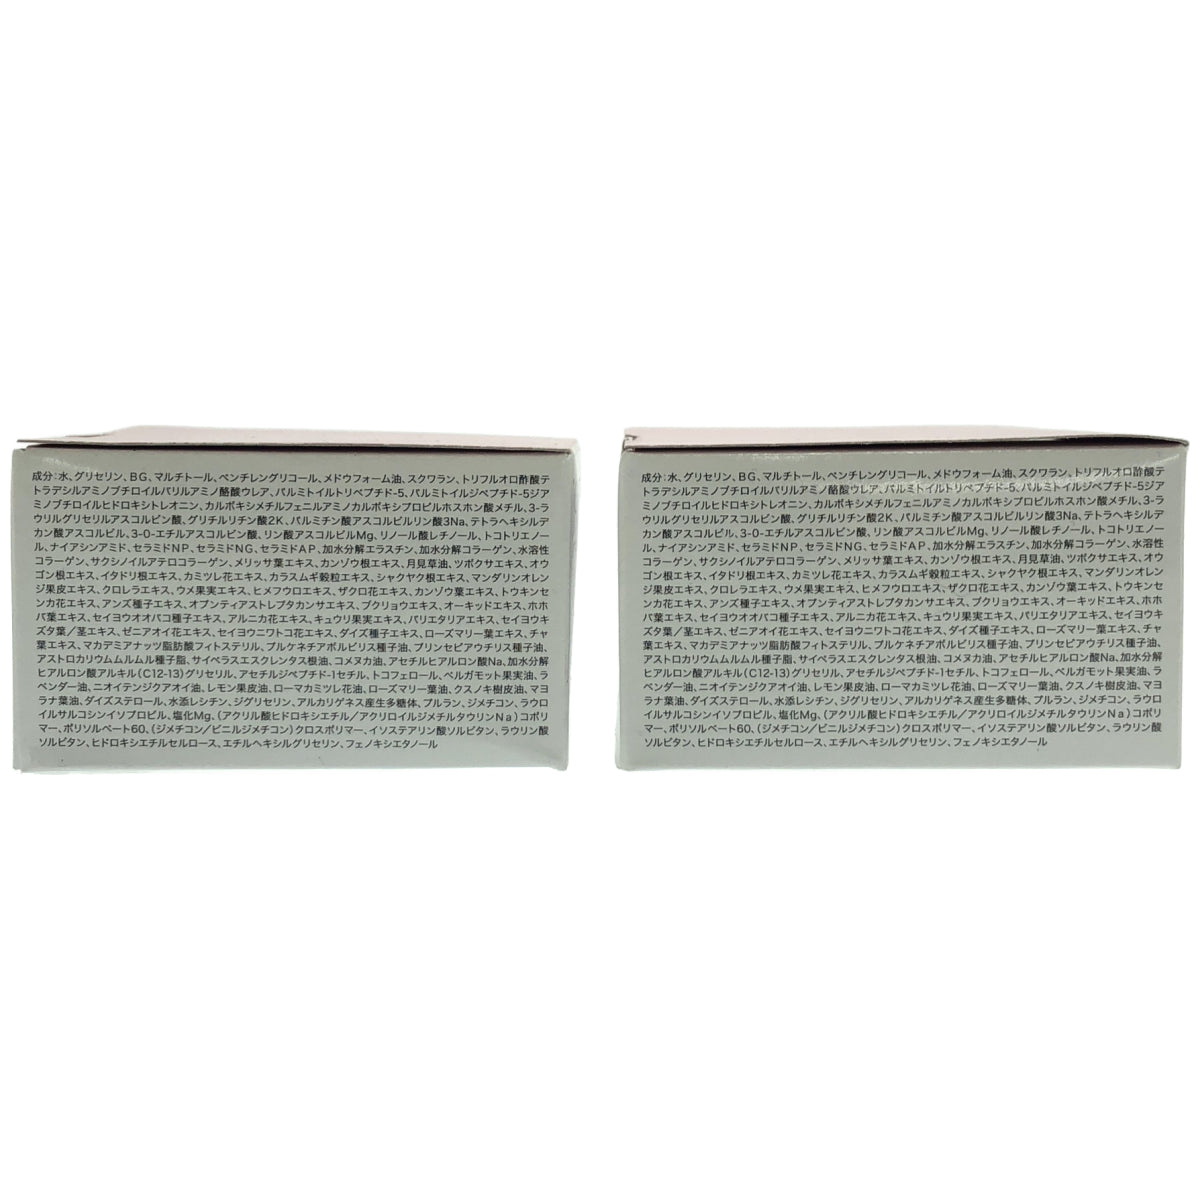 成分：水、グリセリン、BG、マルチトール、ペンチレングリコール、メドウフォーム油、スクワラン、トリフルオロ酢酸テ
トラデシルアミノブチロイルバリルアミノ酪酸ウレア、パルミトイルトリペプチド-5、パルミトイルジペプチド-5ジア
ミノブチロイルヒドロキシトレオニン、カルボキシメチルフェニルアミノカルボキシプロピルホスホン酸メチル、3-ラ
ウリルグリセリルアスコルビン酸、グリチルリチン酸2K、パルミチン酸アスコルビルリン酸3Na、テトラヘキシルデ
カン酸アスコルビル、3-O-エチルアスコルビン酸、リン酸アスコルビルMg、リノール酸レチノール、トコトリエノー
ル、ナイアシンアミド、セラミドNP、セラミドNG、セラミドAP、加水分解エラスチン、加水分解コラーゲン、水溶性
コラーゲン、サクシノイルアテロコラーゲン、メリッサ葉エキス、カンゾウ根エキス、月見草油、ツボクサエキス、オウ
ゴン根エキス、イタドリ根エキス、カミツレ花エキス、カラスムギ穀粒エキス、シャクヤク根エキス、マンダリンオレン
ジ果皮エキス、クロレラエキス、ウメ果実エキス、ヒメフウロエキス、ザクロ花エキス、カンゾウ葉エキス、トウキンセ
ンカ花エキス、アンズ種子エキス、オプンティアストレプタカンサエキス、ブクリョウエキス、オーキッドエキス、ホホ
バ葉エキス、セイヨウオオバコ種子エキス、アルニカ花エキス、キュウリ果実エキス、パリエタリアエキス、セイヨウキ
ズタ葉／茎エキス、ゼニアオイ花エキス、セイヨウニワトコ花エキス、ダイズ種子エキス、ローズマリー葉エキス、チャ
葉エキス、マカデミアナッツ脂肪酸フィトステリル、プルケネチアボルビリス種子油、プリンセピアウチリス種子油、
アストロカリウムムルムル種子脂、サイペラスエスクレンタス根油、コメヌカ油、アセチルヒアルロン酸Na、加水分解
ヒアルロン酸アルキル(C12-13)グリセリル、アセチルジペプチド-1セチル、トコフェロール、ベルガモット果実油、ラ
ベンダー油、ニオイテンジクアオイ油、レモン果皮油、ローマカミツレ花油、ローズマリー葉油、クスノキ樹皮油、マヨ
ラナ葉油、ダイズステロール、水添レシチン、ジグリセリン、アルカリゲネス産生多糖体、プルラン、ジメチコン、ラウロ
イルサルコシンイソプロピル、塩化Mg、(アクリル酸ヒドロキシエチル／アクリロイルジメチルタウリンNa)コポリ
マー、ポリソルベート60、(ジメチコン／ビニルジメチコン)クロスポリマー、イソステアリン酸ソルビタン、ラウリン酸
ソルビタン、ヒドロキシエチルセルロース、エチルヘキシルグリセリン、フェノキシエタノール
成分：水、グリセリン、BG、マルチトール、ペンチレングリコール、メドウフォーム油、スクワラン、トリフルオロ酢酸テ
トラデシルアミノブチロイルバリルアミノ酪酸ウレア、パルミトイルトリペプチド-5、パルミトイルジペプチド-5ジア
ミノブチロイルヒドロキシトレオニン、カルボキシメチルフェニルアミノカルボキシプロピルホスホン酸メチル、3-ラ
ウリルグリセリルアスコルビン酸、グリチルリチン酸2K、パルミチン酸アスコルビルリン酸3Na、テトラヘキシルデ
カン酸アスコルビル、3-O-エチルアスコルビン酸、リン酸アスコルビルMg、リノール酸レチノール、トコトリエノー
ル、ナイアシンアミド、セラミドNP、セラミドNG、セラミドAP、加水分解エラスチン、加水分解コラーゲン、水溶性
コラーゲン、サクシノイルアテロコラーゲン、メリッサ葉エキス、カンゾウ根エキス、月見草油、ツボクサエキス、オウ
ゴン根エキス、イタドリ根エキス、カミツレ花エキス、カラスムギ穀粒エキス、シャクヤク根エキス、マンダリンオレン
ジ果皮エキス、クロレラエキス、ウメ果実エキス、ヒメフウロエキス、ザクロ花エキス、カンゾウ葉エキス、トウキンセ
ンカ花エキス、アンズ種子エキス、オプンティアストレプタカンサエキス、ブクリョウエキス、オーキッドエキス、ホホ
バ葉エキス、セイヨウオオバコ種子エキス、アルニカ花エキス、キュウリ果実エキス、パリエタリアエキス、セイヨウキ
ズタ葉／茎エキス、ゼニアオイ花エキス、セイヨウニワトコ花エキス、ダイズ種子エキス、ローズマリー葉エキス、チャ
葉エキス、マカデミアナッツ脂肪酸フィトステリル、プルケネチアボルビリス種子油、プリンセピアウチリス種子油、
アストロカリウムムルムル種子脂、サイペラスエスクレンタス根油、コメヌカ油、アセチルヒアルロン酸Na、加水分解
ヒアルロン酸アルキル(C12-13)グリセリル、アセチルジペプチド-1セチル、トコフェロール、ベルガモット果実油、ラ
ベンダー油、ニオイテンジクアオイ油、レモン果皮油、ローマカミツレ花油、ローズマリー葉油、クスノキ樹皮油、マヨ
ラナ葉油、ダイズステロール、水添レシチン、ジグリセリン、アルカリゲネス産生多糖体、プルラン、ジメチコン、ラウロ
イルサルコシンイソプロピル、塩化Mg、(アクリル酸ヒドロキシエチル／アクリロイルジメチルタウリンNa)コポリ
マー、ポリソルベート60、(ジメチコン／ビニルジメチコン)クロスポリマー、イソステアリン酸ソルビタン、ラウリン酸
ソルビタン、ヒドロキシエチルセルロース、エチルヘキシルグリセリン、フェノキシエタノール